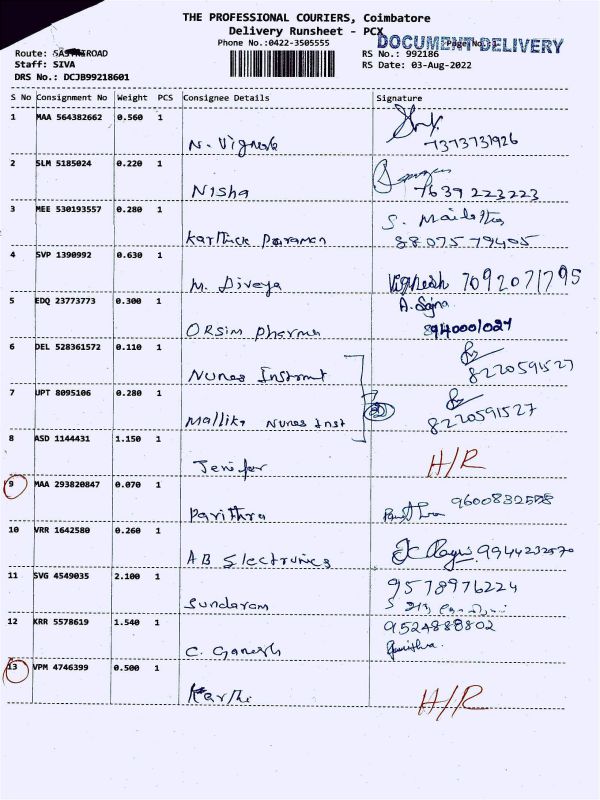 THE PROFESSIONAL COURIERS, Coimbatore
Delivery Runsheet - PCX
Phone No.:0422-3505555
DOCUMENT DELIVERY
Route: ROAD
Staff: SIVA
DRS No.: DCJB99218601
RS No.: 992186
RS Date: 03-Aug-2022
S No Consignment No Weight PCS Consignee Details Signature
1 MAA 564382662 0.560 1
N. Vignesh 7373731926
2 SLM 5185024 0.220 1
Nisha 7639 223223
3 MEE 530193557 0.280 1
S.
Karthick 88075 79405
4 SVP 1390992 0.630 1
M. Diveya Vignesh 7092071795
5 EDQ 23773773 0.300 1
A.
ORSim Pharma 8940001024
6 DEL 528361572 0.110 1
Nunes Instmt 8220591527
7 UPT 8095106 0.280 1
Mallika Nunes Inst 8220591527
8 ASD 1144431 1.150 1
Jenifer H/R
9 MAA 293820847 0.070 1
Pavithra
10 VRR 1642580 0.260 1
AB Electronics 9944232570
11 SVG 4549035 2.100 1
9578976224
Sundaram
12 KRR 5578619 1.540 1
9524888802
C. Ganesh
13 VPM 4746399 0.500 1
Karthi H/R